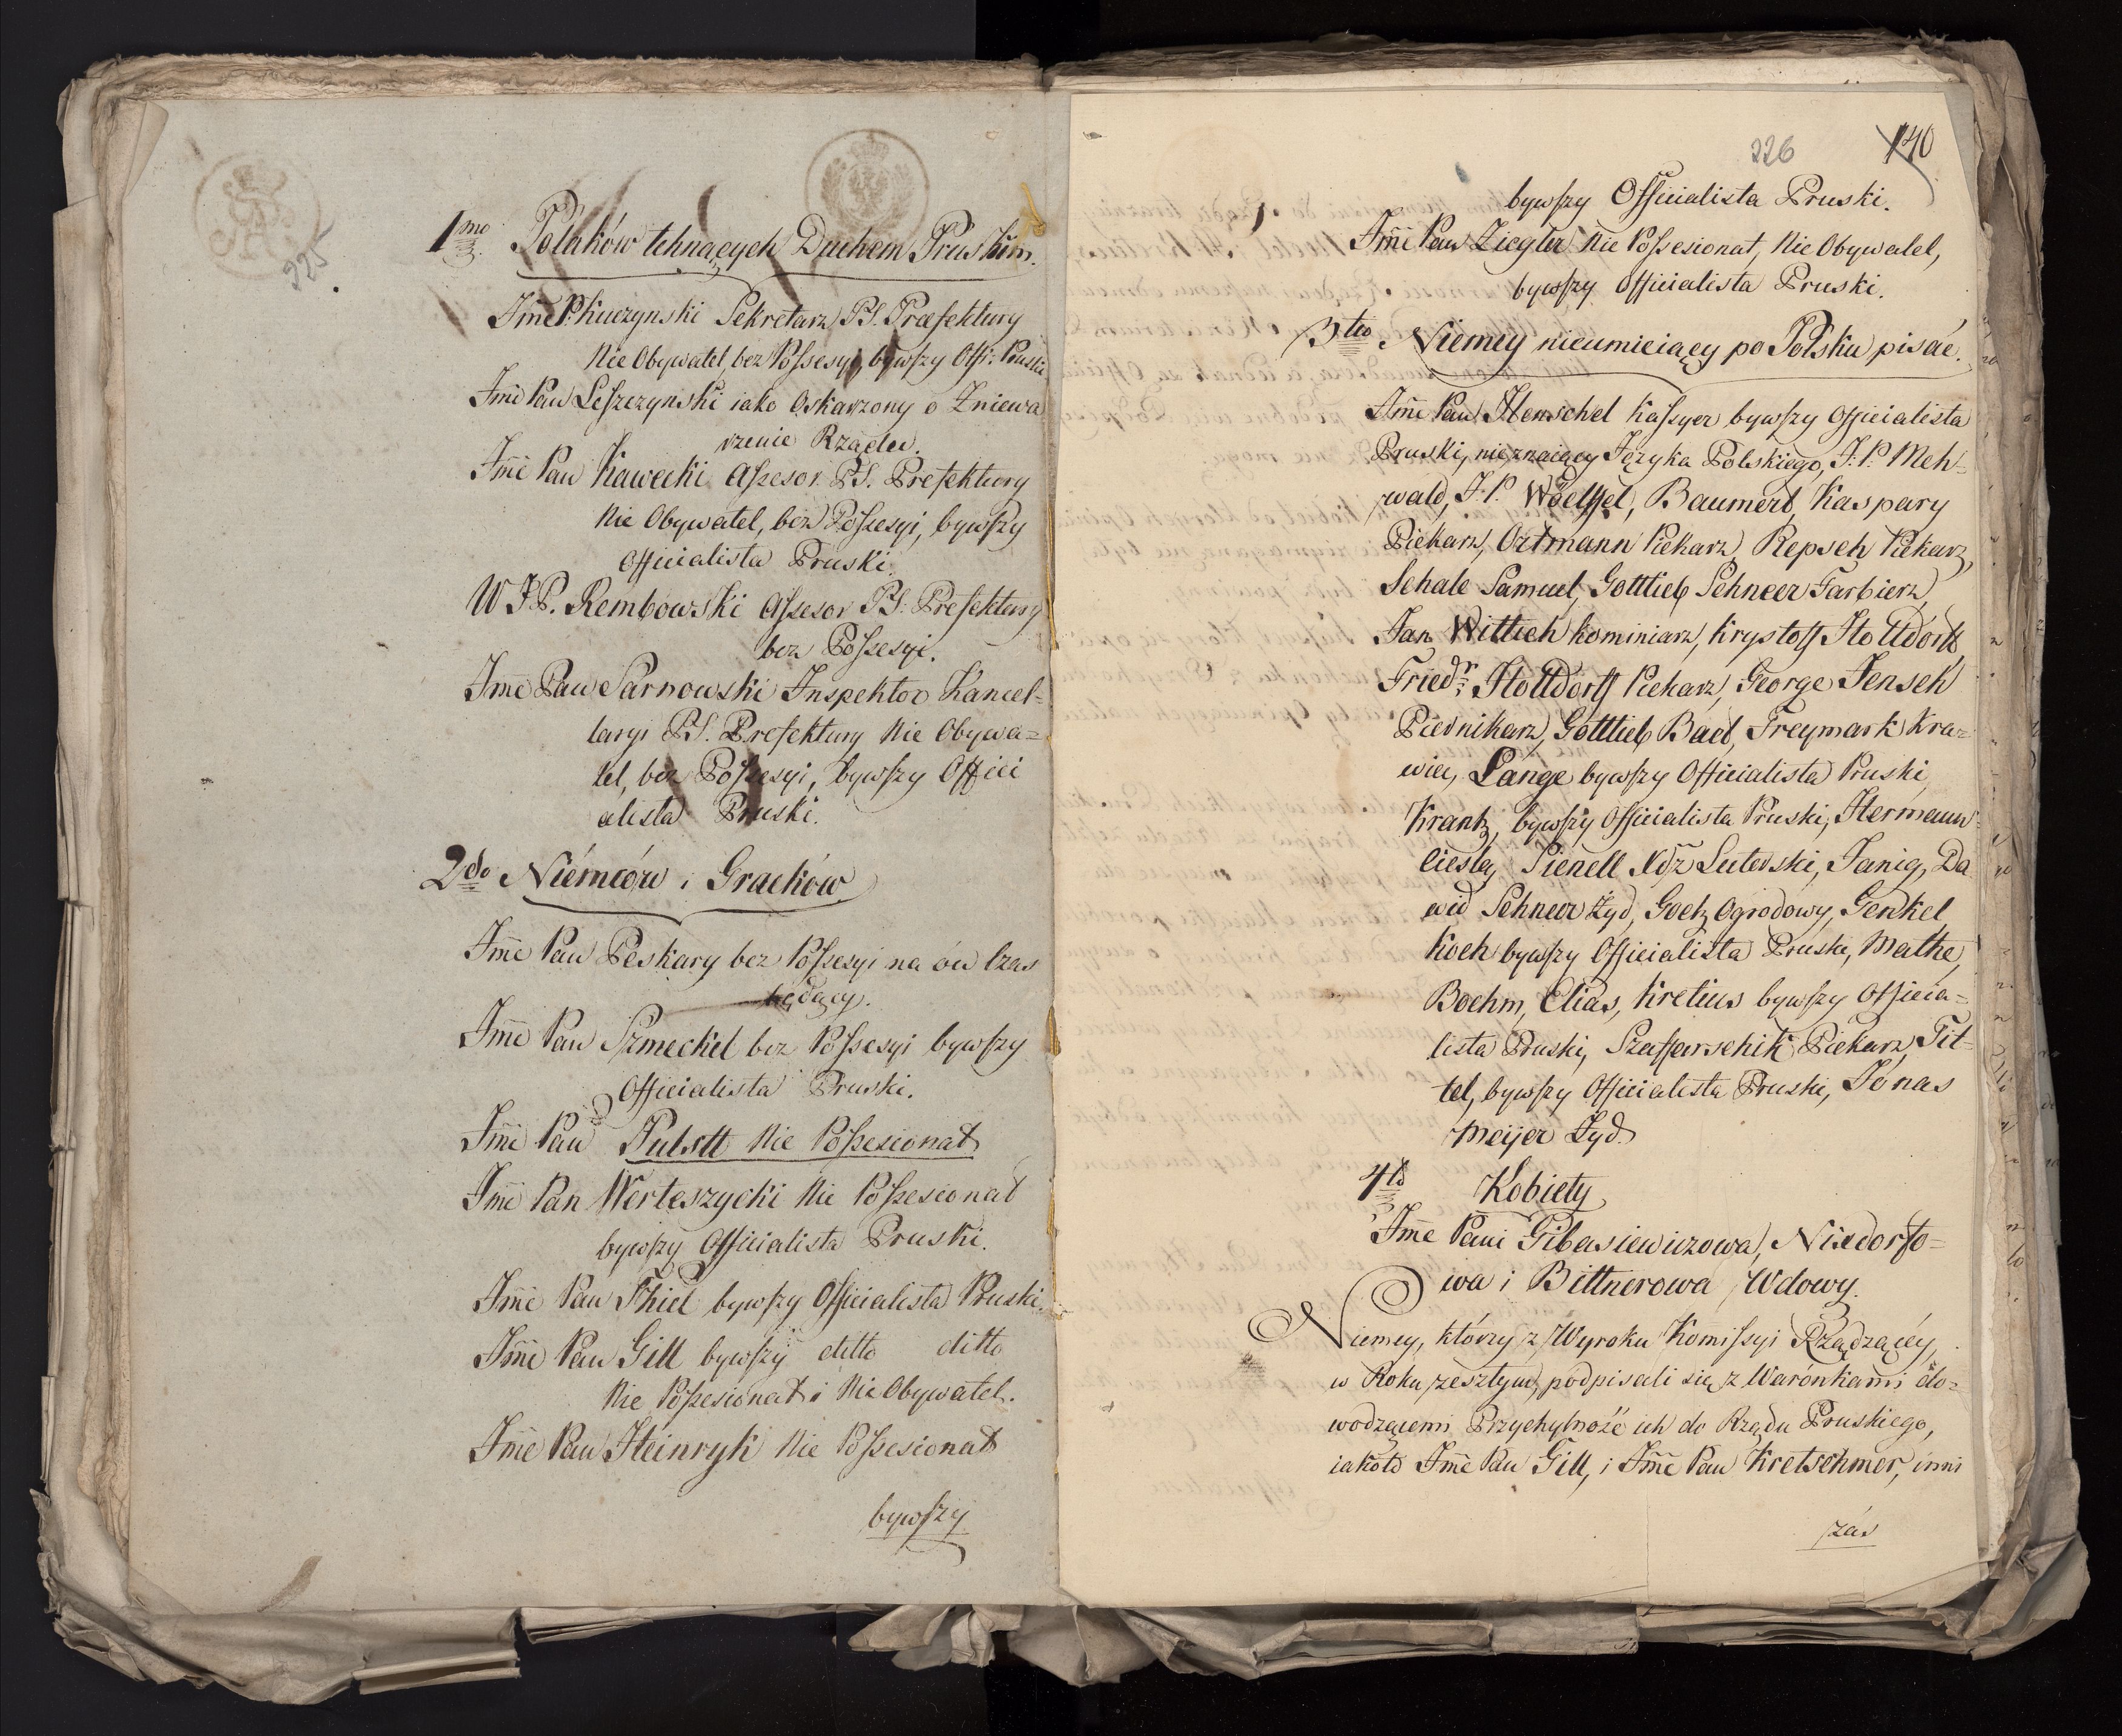 225
1mo Polaków tchnących Duchem Pruskim.
Jmć P. Kuczynski Sekretarz PS. Præfektury
Nie Obywatel, bez Possesyi, bywszy Offi: Pruski
Jmć Pan Leszczynski iako Oskarzony o Zniewa
rzenie Rządu.
Jmć Pan Kawecki Assesor PS. Prefektury
Nie Obywatel, bez Possesyi, bywszy
Officialista Pruski.
W J P. Rembowski Assesor PS: Prefektury
bez Possesyi.
Jmć Pan Sarnowski Inspektor Kancel-
laryi PS. Prefektury Nie Obywa=
tel, bez Possesyi, bywszy Offici
alista Pruski.
2do Niémców i Graeków
Jmć Pan Peskary bez Possesyi na ów Czas
będący.
Jmć Pan Szmeckel bez Possesyi bywszy
Officialista Pruski.
Jmć Pan Pulstt Nie Possesionat
Jmć Pan Werteszycki Nie Possesionat
bywszy Officialista Pruski.
Jmć Pan Thiel bywszy Officialista Pruski.
Jmć Pan Gill bywszy ditto ditto
Nie Possesionat i Nie Obywatel.
Jmć Pan Heinryk Nie Possesionat
bywszy
226 140
bywszy Officialista Pruski.
Jmć Pan Ziegler Nie Possesionat, Nie Obywatel,
bywszy Officialista Pruski.
3tio Niemcy nieumieiący po Polsku pisać.
Jmć Pan Henschel Kassyer bywszy Officialista
Pruski, nieznaiący Języka Polskiego, J: P. Meh=
wald, J. P. Woelffel, Baumert, Kaspary
Piekarz, Ortmann Piekarz, Repsch Piekarz,
Schale Samuel, Gottlieb Schneer Farbierz,
Jan Wittich Kominiarz, Krystoff Holldorff,
Friedr: Holldorff Piekarz, George Jensch
Piernikarz, Gottlieb Baet, Freymark Kra=
wiec, Lange bywszy Officialista Pruski,
Krantz, bywszy Officialista Pruski, Hermann
Ciesla, Sienell Xdz Luterski, Janig, Da
wid Schneer Żyd, Goetz Ogrodowy, Genkel
Koch bywszy Officialista Pruski, Mathe,
Boehm, Elias, Kretius bywszy Officia=
lista Pruski, Szaffarschik Piekarz, Tit=
tel, bywszy Officialista Pruski, Jonas
Meijer Żyd.
4to Kobiety
Jmć Pani Gibasiewiczowa, Nixdorfo=
wa i Bittnerowa Wdowy.
Niemcy, którzy z Wyroku Komissyi Rządzącéy,
w Roku zeszłym, podpisali się z Warónkami do=
wodzącemi Przychylność ich do Rządu Pruskiego,
iakoto Jmć Pan Gill, i Jmć Pan Kretschmer, inni
zás